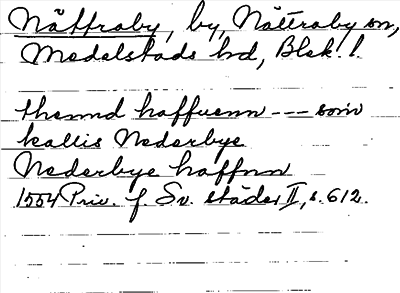 Nättraby, by, Nättraby sn,
Medelstads hd, Blek. l.
thennd haffuenn --- som
kallis Nederbye
Nederbye haffnn
1554 Priv. f. Sv. städer II, s. 612.